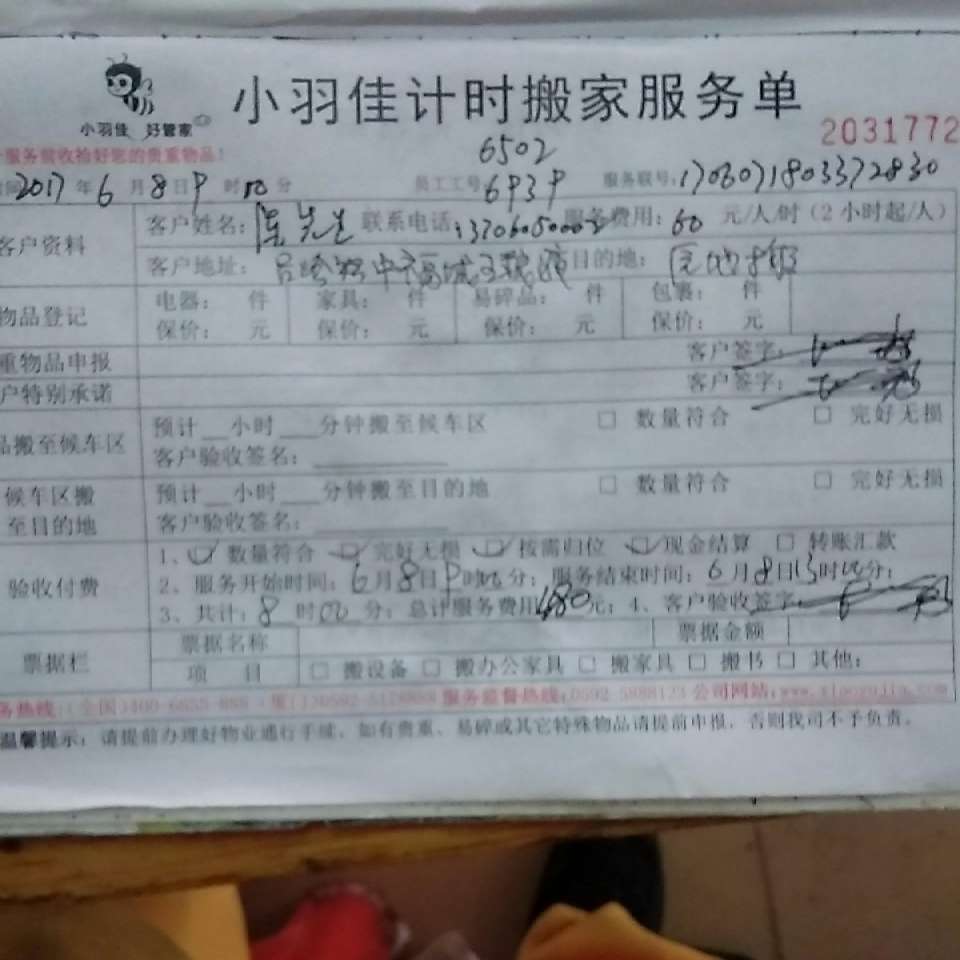 小羽佳计时搬家服务单
小羽佳 好管家
2031772
服务验收拾好您的贵重物品!
6502
2017年6月8日9时00分 员工工号6939 服务联号:
客户资料 客户姓名:陈先生 联系电话: 服务费用:60元/人/时(2小时起/人)
客户地址: 目的地:
物品登记 电器: 件 家具: 件 易碎品: 件 包裹: 件
保价: 元 保价: 元 保价: 元 保价: 元
重物品申报 客户签字:
户特别承诺 客户签字:
品搬至候车区 预计__小时___分钟搬至候车区 □ 数量符合 □ 完好无损
客户验收签名:
候车区搬至目的地 预计__小时___分钟搬至目的地 □ 数量符合 □ 完好无损
客户验收签名:
验收付费 1、☑ 数量符合 ☑ 完好无损 ☑ 按需归位 ☑ 现金结算 □ 转账汇款
2、服务开始时间:6月8日9时00分;服务结束时间:6月8日13时00分;
3、共计:8时00分;总计服务费用480元;4、客户验收签字:
票据栏 票据名称 票据金额
项 目 □ 搬设备 □ 搬办公家具 □ 搬家具 □ 搬书 □ 其他:
务热线:(全国) 服务监督热线:0592-5888123 公司网站:www.xiaoyujia.com
温馨提示:请提前办理好物业通行手续,如有贵重、易碎或其它特殊物品请提前申报,否则我司不予负责。